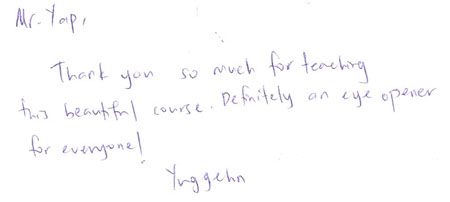 Mr. Yap,
Thank you so much for teaching
this beautiful course. Definitely an eye opener
for everyone!